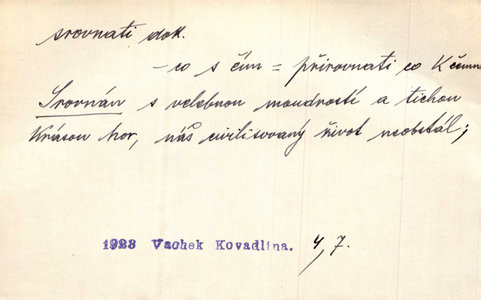 srovnati dok.
– co s čím = přirovnati co k čemu
Srovnán s velebnou moudrostí a tichou
krásou hor, náš civilisovaný život neobstál;
1923 Vachek Kovadlina. 4, 7.